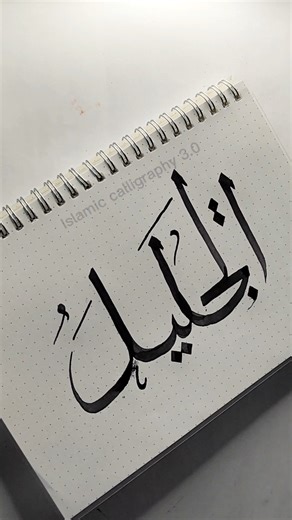 Islamic calligraphy 3.0
الجليل